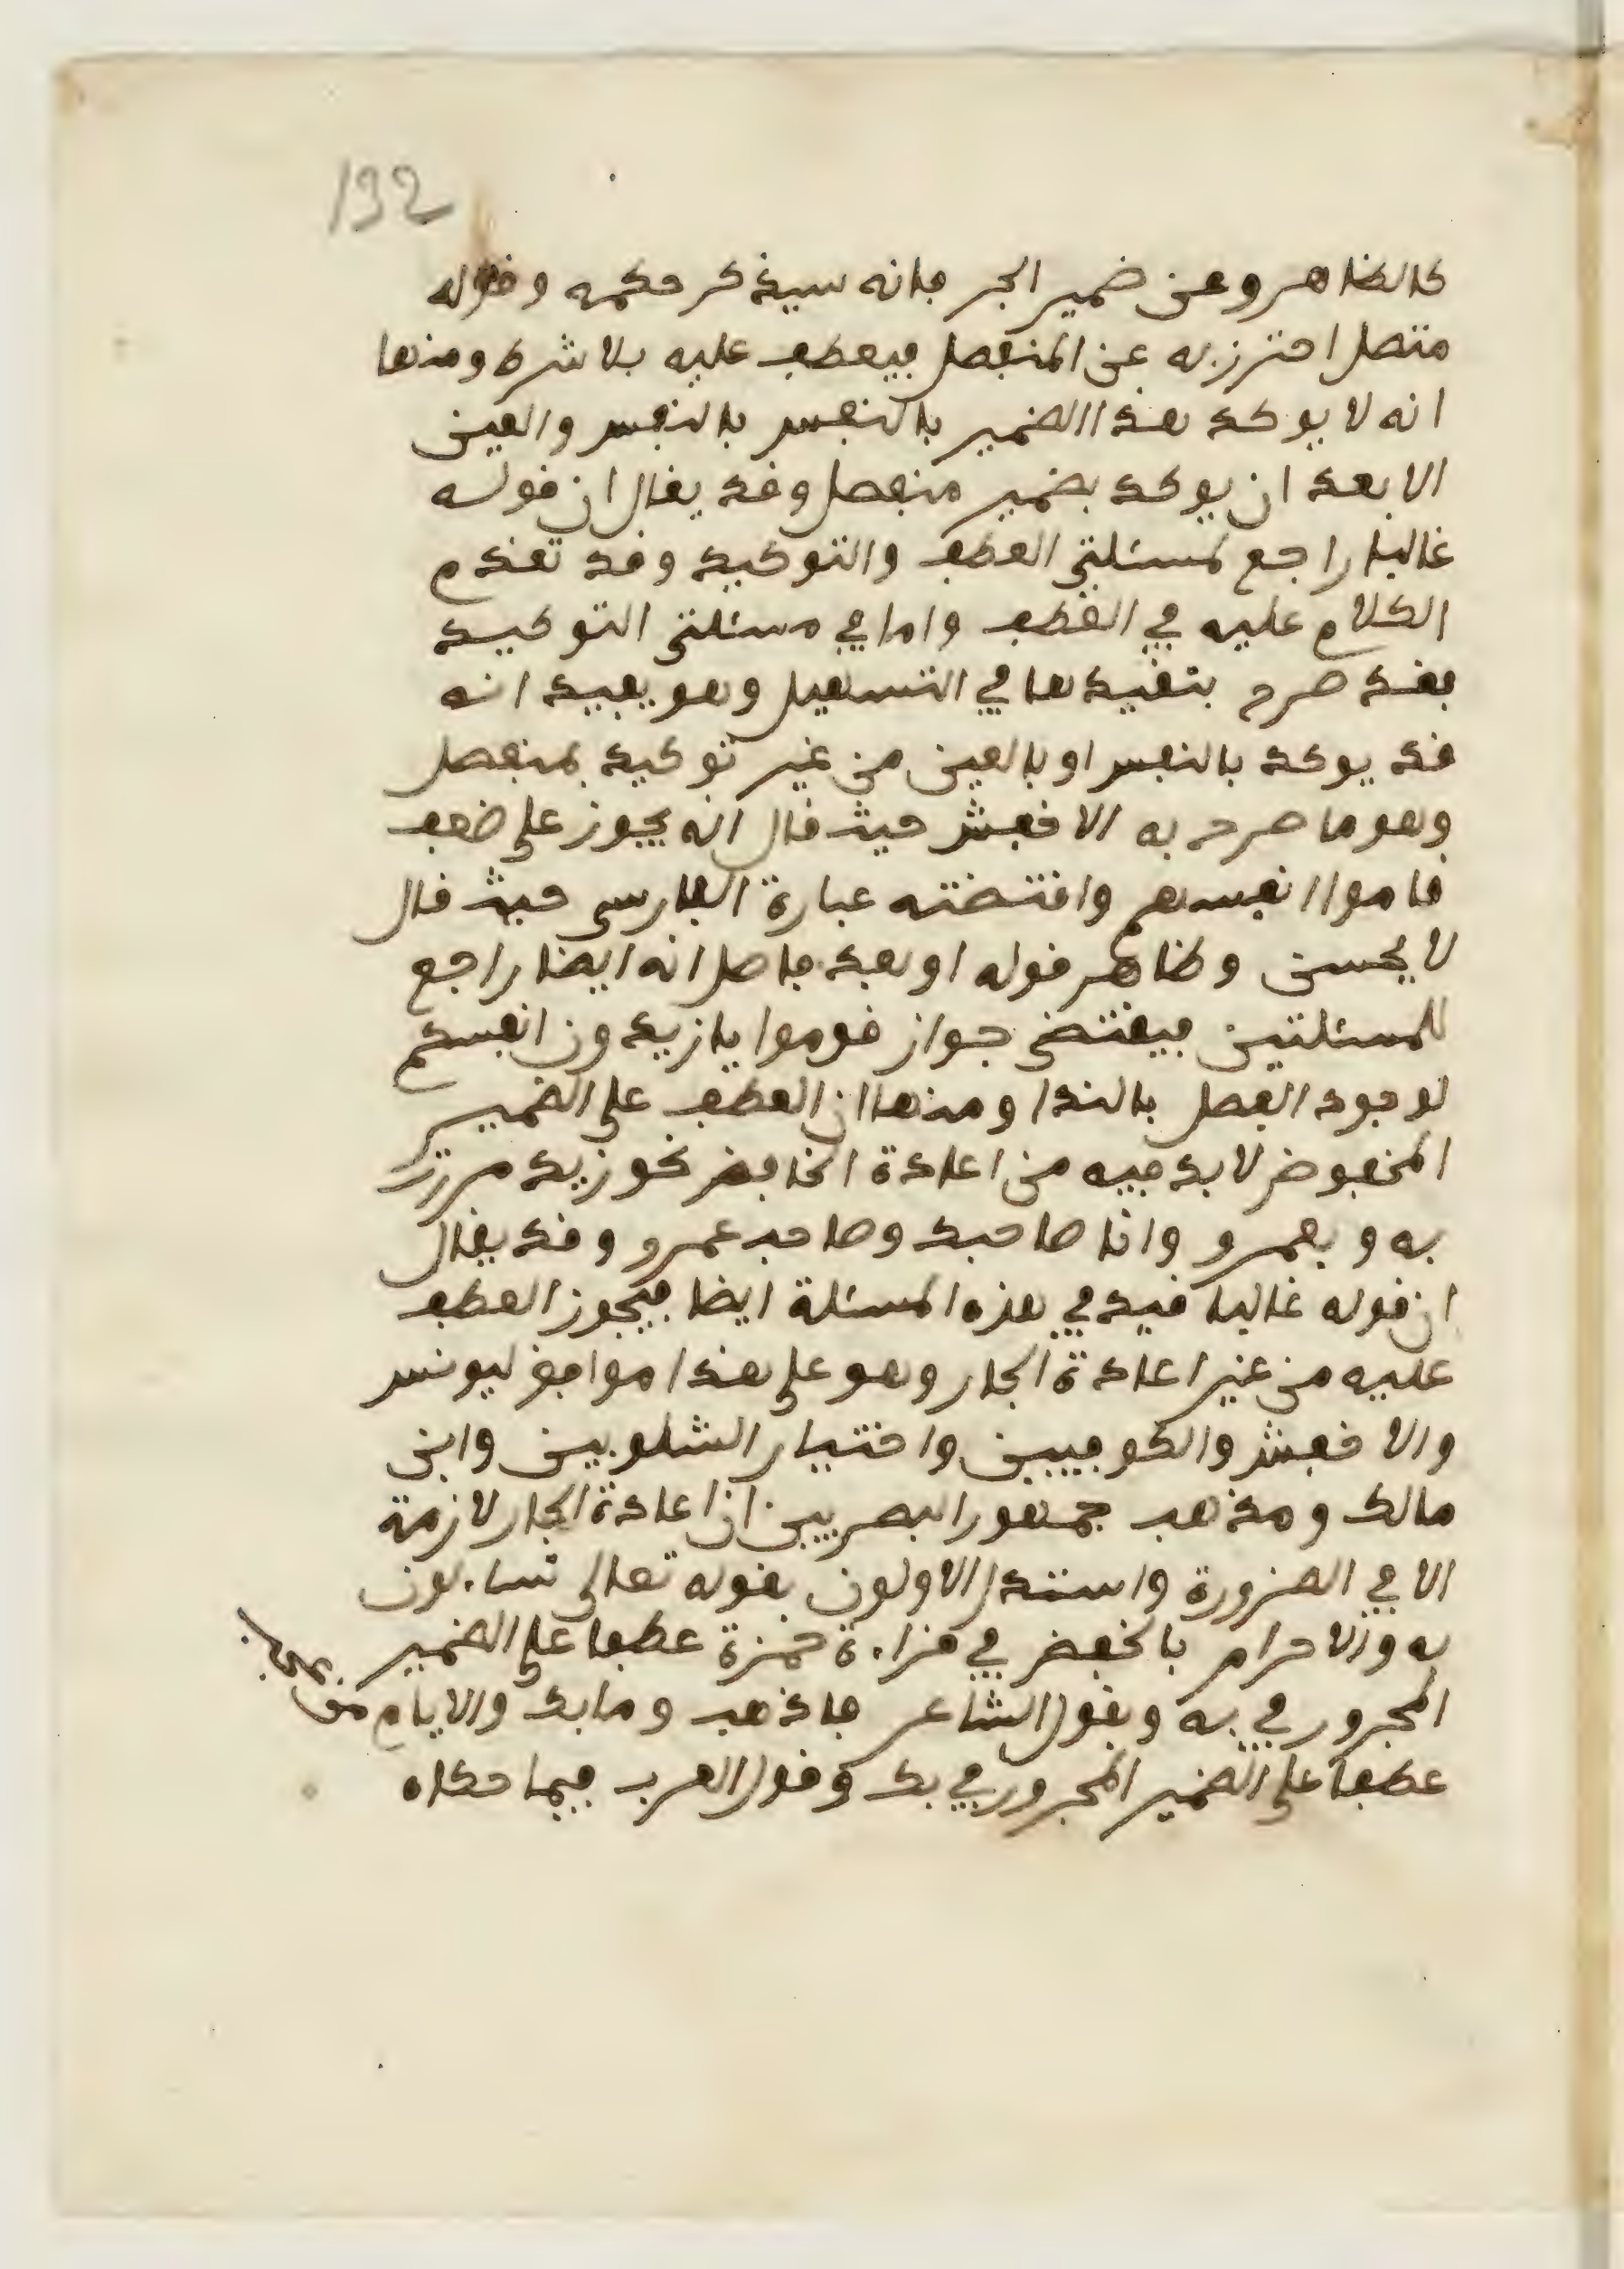 192
كالظاهر وعن ضمير الجر فانه سيذكر حكمه وقوله
متصل احترز به عن المنفصل فيعطف عليه بلا شرط ومنها
انه لا يوكد هذا الضمير بالنفس بالنفس والعين
الا بعد ان يوكد بضمير منفصل وقد يقال ان قوله
غالبا راجع لمسئلتي العطف والتوكيد وقد تقدم
الكلام عليه في العطف واما في مسئلتي التوكيد
فقد صرح بتقييدها في التسهيل وهو يفيد انه
قد يوكد بالنفس او بالعين من غير توكيد بمنفصل
وهو ما صرح به الاخفش حيث قال انه يجوز على ضعف
قاموا انفسهم واقتضته عبارة الفارسي حيث قال
لا يحسن وظاهر قوله او بعد فاصل انه ايضا راجع
للمسئلتين فيقتضي جواز قوموا يا زيدون انفسكم
لوجود الفصل بالندا ومنها ان العطف على الضمير
المخفوض لا بد فيه من اعادة الخافض نحو زيد مررت
به وبعمرو وانا صاحبك وصاحب عمرو وقد يقال
ان قوله غالبا قيد في هذه المسئلة ايضا فيجوز العطف
عليه من غير اعادة الجار وهو على هذا موافق ليونس
والاخفش والكوفيين واختيار الشلوبين وابن
مالك ومذهب جمهور البصريين ان اعادة الجار لازمة
الا في الضرورة واستدل الاولون بقوله تعالى تساءلون
به والارحام بالخفض في قراءة حمزة عطفا على الضمير
المجرور في به وبقول الشاعر فاذهب وما بك والايام من عجب
عطفا على الضمير المجرور في بك وقول العرب فيما حكاه